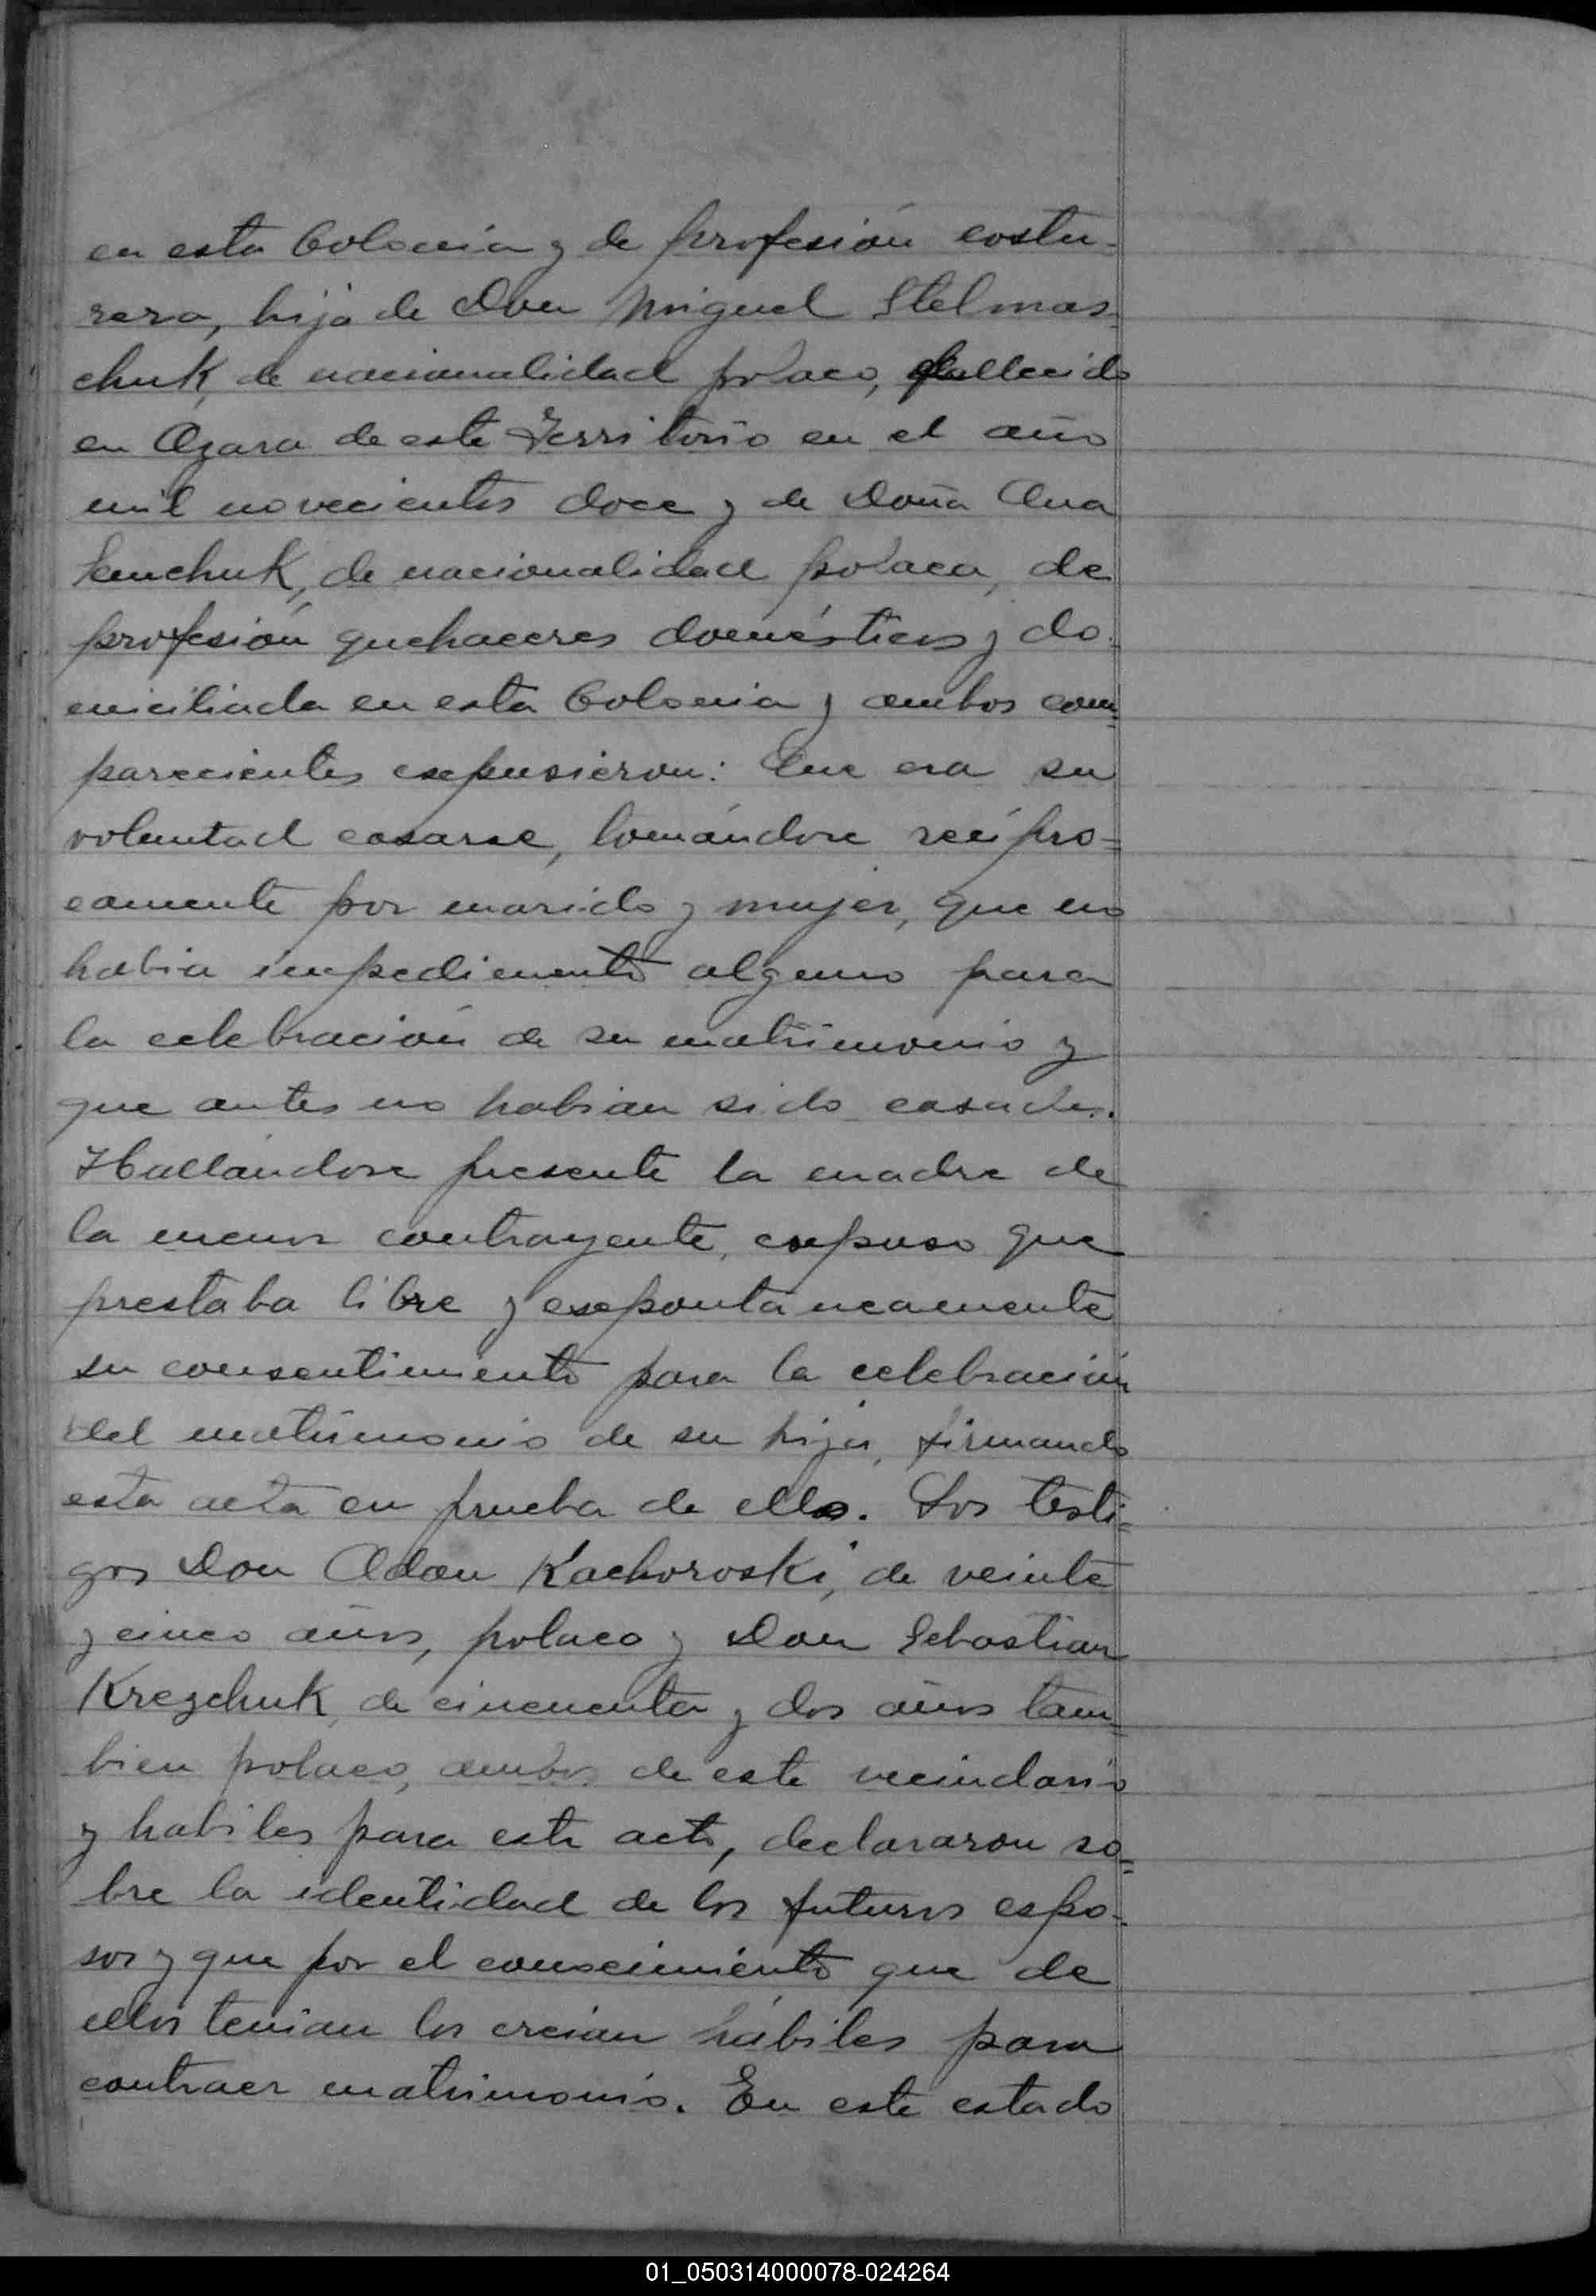 en esta Colonia y de profesión costu-
rera, hija de Don Miguel Stelmas-
chuk, de nacionalidad polaco, fallecido
en Azara de este Territorio en el año
mil novecientos doce y de Doña Ana
Senchuk, de nacionalidad polaca, de
profesión quehaceres domésticos y do-
miciliada en esta Colonia y ambos com-
parecientes expusieron: Que era su
voluntad casarse, tomándose recípro-
camente por marido y mujer, que no
habia impedimento alguno para
la celebración de su matrimonio y
que antes no habian sido casados.
Hallándose presente la madre de
la menor contrayente, expuso que
prestaba libre y expontaneamente
su consentimiento para la celebración
del matrimonio de su hija, firmando
esta acta en prueba de ello. Los testi-
gos Don Adan Kachoroski, de veinte
y cinco años, polaco y Don Sebastian
Krezchuk, de cincuenta y dos años tam-
bien polaco, ambos de este vecindario
y habiles para este acto, declararon so-
bre la identidad de los futuros espo-
sos y que por el conocimiento que de
ellos tenian los creian hábiles para
contraer matrimonio. En este estado
01_050314000078-024264